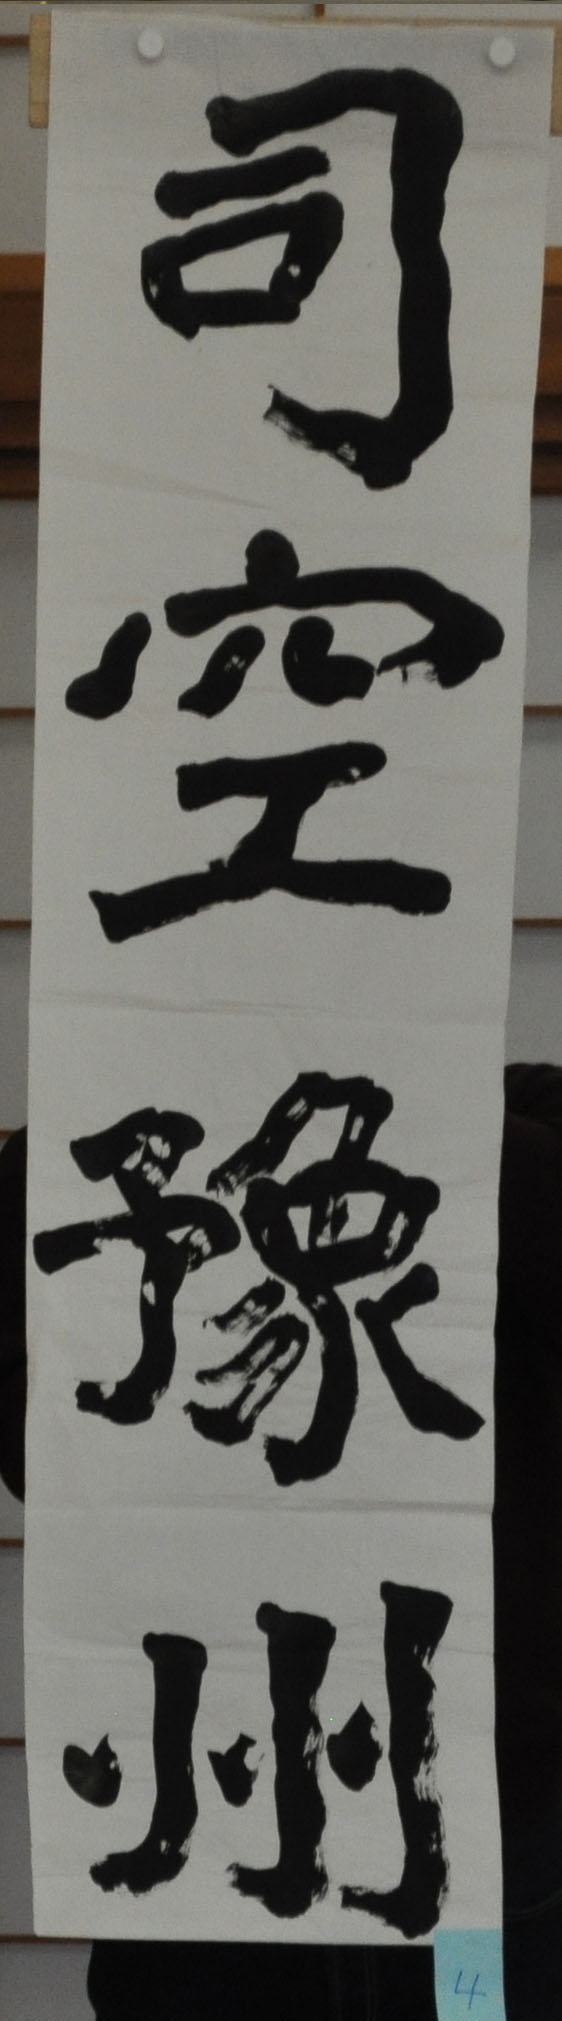 司空豫州
4